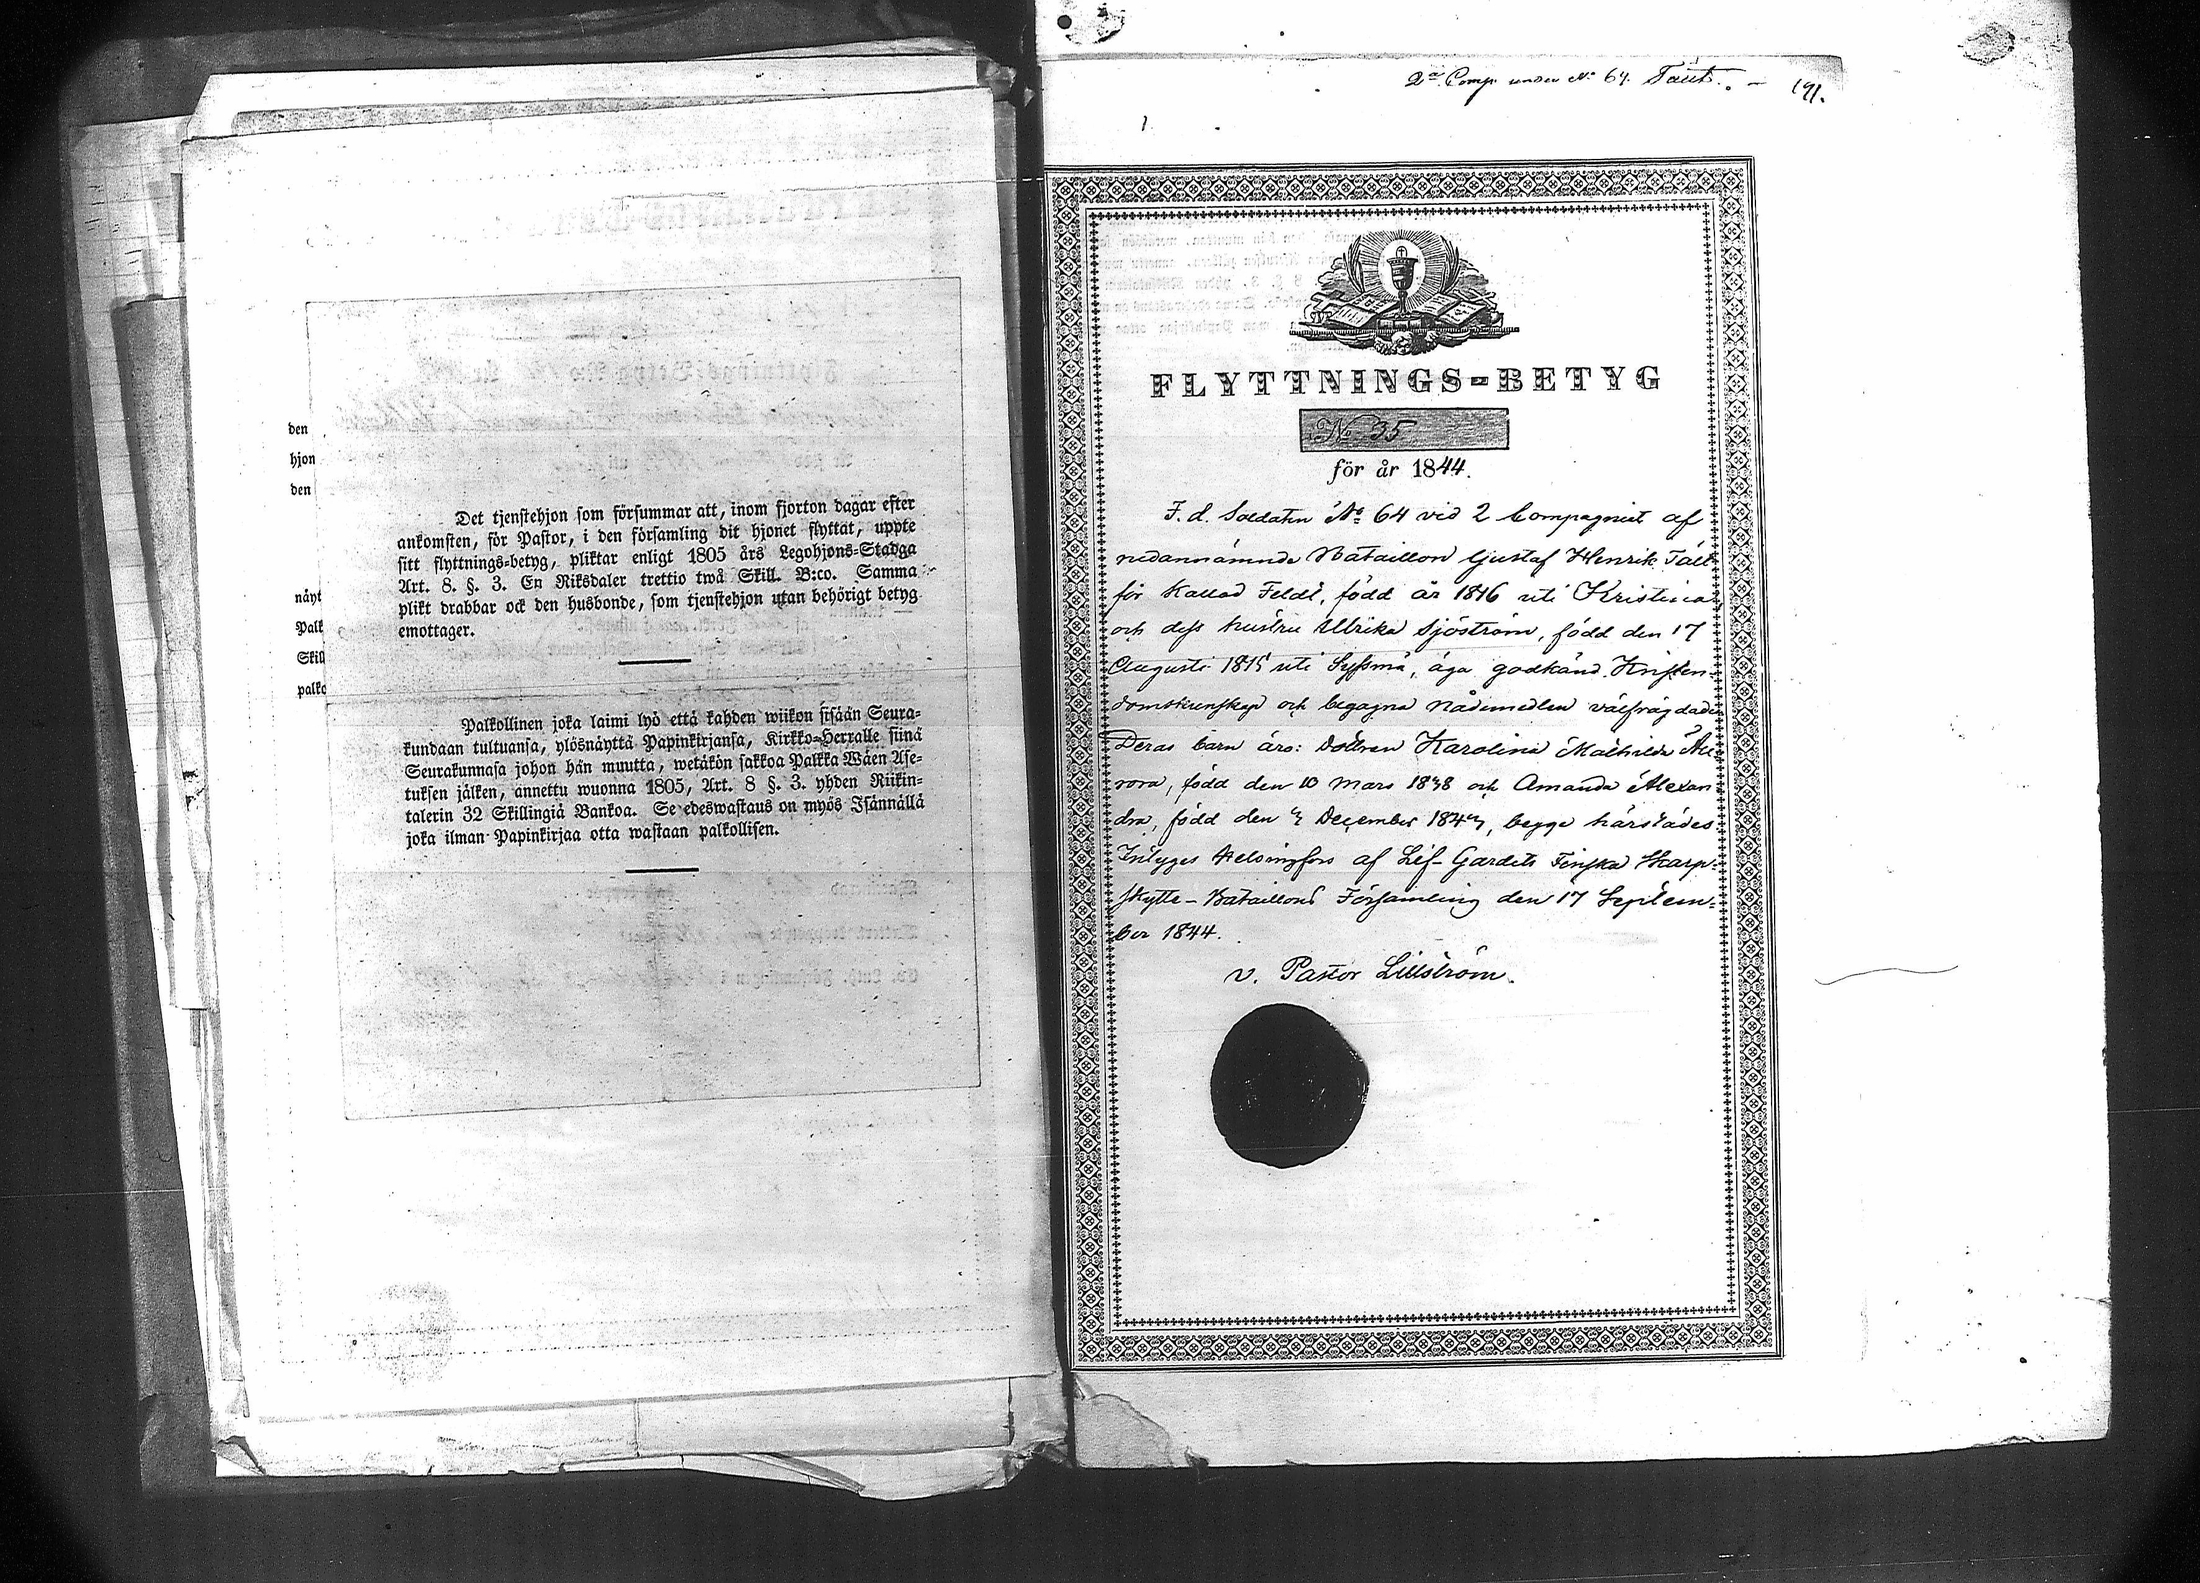 den
hjon
den
Det tjenstehjon som försummar att, inom fjorton dagar efter
ankomsten, för Pastor, i den församling dit hjonet flyttat, uppte
sitt flyttnings-betyg, pliktar enligt 1805 års Legohjons-Stadga
Art. 8. §. 3. En Riksdaler trettio twå Skill. B:co. Samma
plikt drabbar ock den husbonde, som tjenstehjon utan behörigt betyg
emottager.
näyt
Palk
Skill
palko
Palkollinen joka laimi lyö että kahden wiikon sisään Seura-
kundaan tultuansa, ylösnäyttä Papinkirjansa, Kirkko-Herralle siinä
Seurakunnasa johon hän muutta, wetäkön sakkoa Palkka Wäen Ase-
tuksen jälken, annettu wuonna 1805, Art. 8 §. 3. yhden Riikin-
talerin 32 Skillingiä Bankoa. Se edeswastaus on myös Isännällä
joka ilman Papinkirjaa otta wastaan palkollisen.
2a Comp. under No 64. 191.
1.
FLYTTNINGS-BETYG
No 35
för år 1844.
F. d. Soldaten No 64 vid 2 Compagniet af
nedannämnde Bataillon Gustaf Henrik
för kallad Feldt, född år 1816 uti Kristina
och dess hustru Ulrika Sjöström, född den 17
Augusti 1815 uti Syssmä, äga godkänd Kristen-
domskunskap och begagna Nådemedlen
Deras barn äro: dottren Karolina Mathilda Au-
rora, född den 10 Mars 1838 och Amanda Alexan
dra, född den December begge härstädes.
Intyges Helsingfors af Lif-Gardets Finska Skarp-
skytte-Bataillons Församling den 17 Septem-
ber 1844.
v. Pastor Lillström.